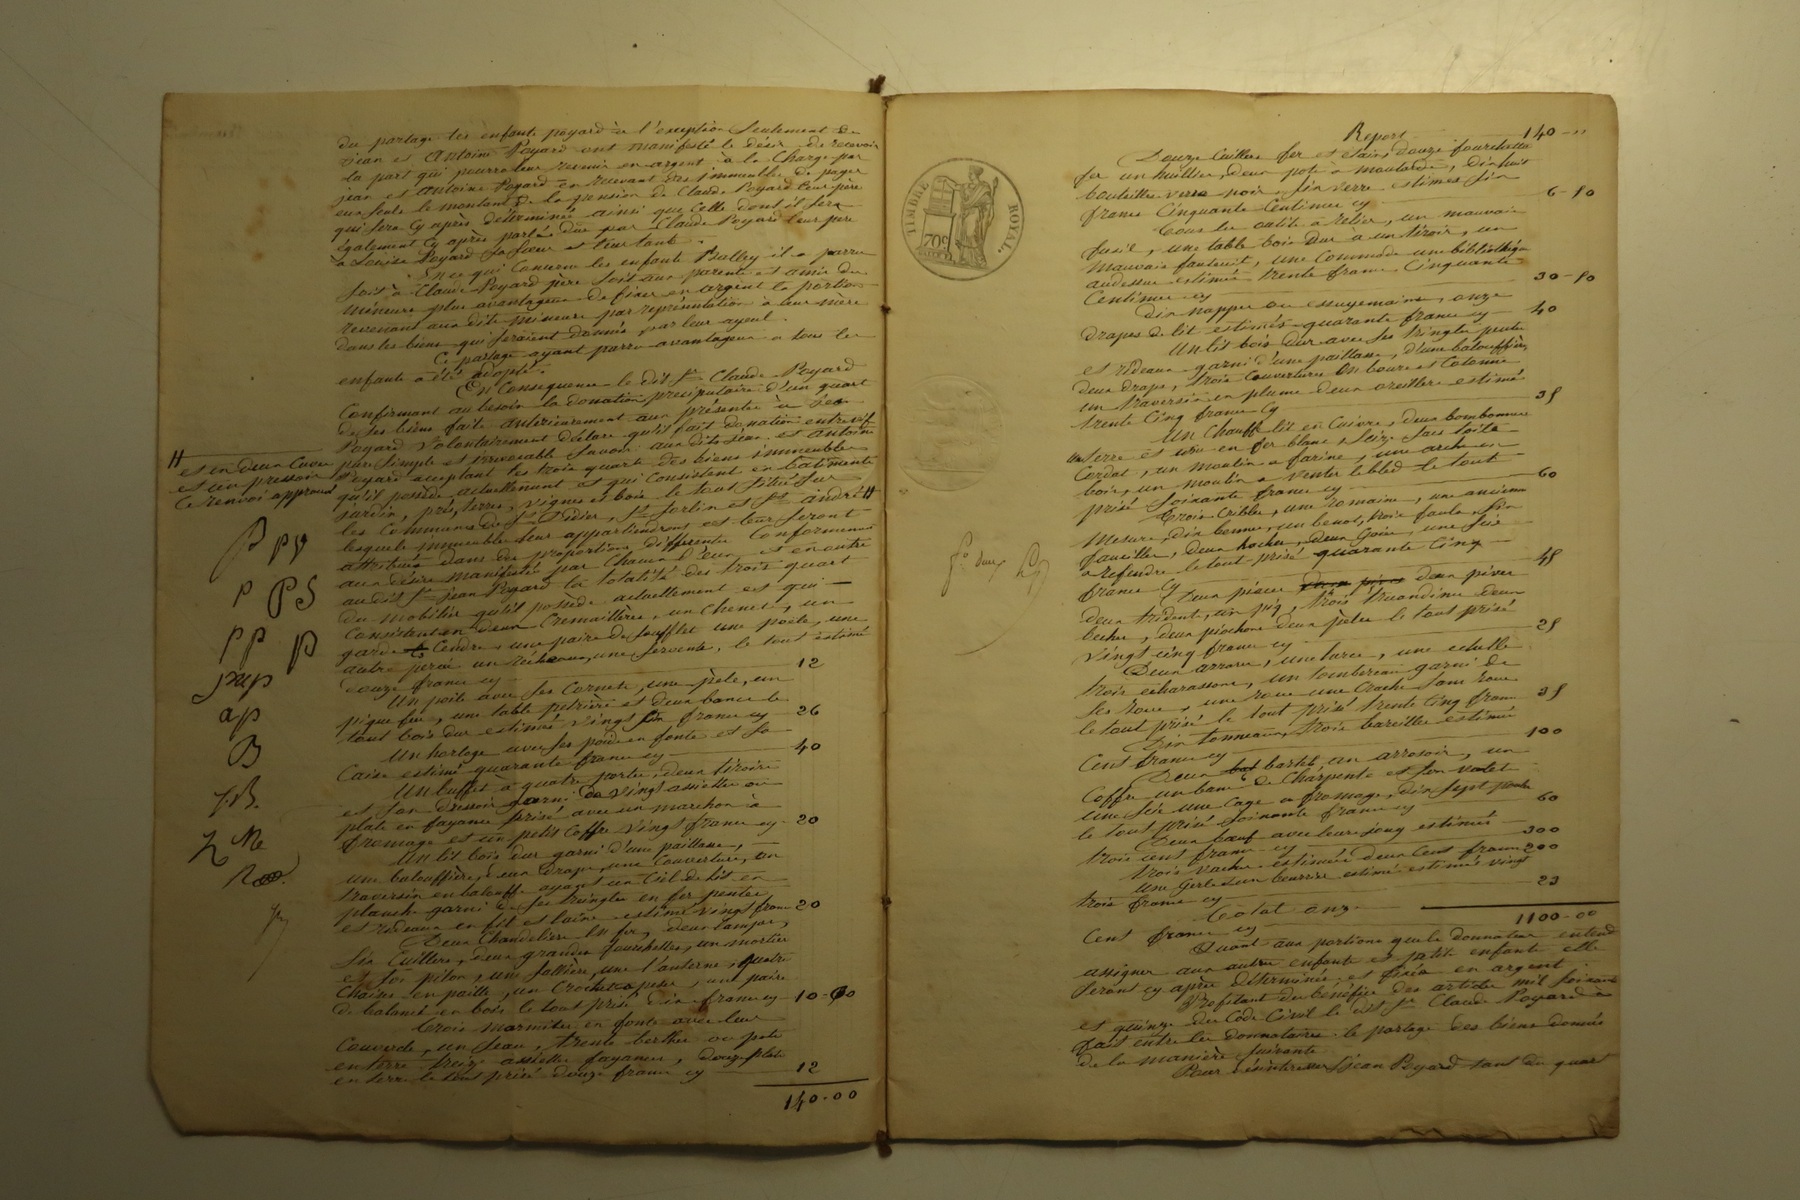 du partage les enfants poyard à l'exception seulement de
jean et Antoine Poyard ont manifesté le désir de recevoir
la part qui pourra leur revenir en argent à la Charge par
jean et Antoine Poyard en recevant les immeubles de payer
eux seuls le montant de la pension de Claude Poyard leur père
qui sera cy après déterminée ainsi que celle dont il sera
également cy après parlé due par Claude Poyard leur père
à Louise Poyard sa sœur et leur tante.
En ce qui concerne les enfants il a parru
soit à Claude Poyard père soit aux parents et amis des
mineurs plus avantageux de fixer en argent la portion
revenant aux dits mineurs par représentation à leur mère
dans les biens qui seraient donnés par leur ayeul.
Ce partage ayant parru avantageux à tous les
enfants a été adopté.
En Conséquence le dit Sr Claude Poyard
Confirmant au besoin la donation préciputaire d'un quart
de ses biens faite antérieurement aux présentes à Jean
Poyard volontairement déclare qu'il fait donation entrevifs
pure simple et irrévocable savoir aux dits jean et antoine
Poyard acceptant les trois quarts des biens immeubles
qu'il possède actuellement et qui consistent en batiments
jardin, prés, terres, vignes et bois le tout situé sur
les Communes de St Didier, St Sorlin et St andré #
lesquels immeubles leur appartiendront et leur seront
attribués dans des proportions différentes Conformément
aux désirs manifestés par Chacun d'eux, et en outre
au dit Sr jean Poyard la totalité des trois quarts
du mobilier qu'il possède actuellement et qui
consistent en deux Cremaillères, un Chenet, un
garde Cendres, une paire de soufflet une poële, une
autre percée un rechaux, une servente, le tout estimé
douze francs cy 12
Un poile avec ses Cornets, une pèle, un
pique feu, une table petrière et deux bancs le
tout bois dur estimé vingt six francs cy 26
Un horloge avec ses poids en fonte et sa
Caise estimé quarante francs cy 40
Un buffet à quatre portes, deux tiroirs
et son dressoir garni de vingt assiettes ou
plats en fayance prisé avec un marchon à
fromage et un petit Coffre vingt francs cy 20
Un lit bois dur garni d'une paillasse,
une balouffière, un drap, une Couverture, un
traversin en balouffe ayant un Ciel de lit en
planche garni de ses tringles en fer pentes
et rideaux en fil et laine estimé vingt francs 20
Deux Chandeliers en fer, deux lampes,
six Cuillers, deux grandes fourchettes, un mortier
et son pilon, une Sallière, une l'anterne, quatre
Chaises en paille, un Crochet à peser, une paire
de balances en bois le tout prisé dix francs cy 10-00
Trois marmites en fonte avec leur
Couvercle, un seau, trente berthes ou pots
en terre treize assiettes fayance, douze plats
en terre le tout prisé douze francs cy 12
140-00
#
et en deux Cuves
et un pressoir
Ce renvoi approuvé
P py
P PS
pp P
pxp
ap
B
J.B.
Report 140-"
Douze Cuillers fer et étain, douze fourchettes
fer un huillier, deux pots à moutarde, dixhuit
bouteilles verre noir, six verre estimés six
francs Cinquante Centimes cy 6-50
Tous les outils à relier, un mauvais
fusil, une table bois dur à un tiroir, un
mauvais fauteuil, une Commode une bibliothèque
au dessus estimés trente francs Cinquante
Centimes cy 30-50
Dix nappes ou essuyemains, onze
drapes de lit estimés quarante francs cy 40
Un lit bois dur avec ses tringles pentes
et rideaux garni d'une paillasse, d'une balouffière,
deux draps, trois couvertures en boure et Cotonne
un traversin en plume deux oreillers estimé
trente Cinq francs cy 35
Un Chauffe lit en Cuivre, deux bombonnes
verre et une en fer blanc, Seize sacs toile
Cordat, un moutin a farine, une arche en
bois, un moulin a venter le bled le tout
prisé Soixante francs cy 60
Trois Cribles, une romaine, une ancienne
Mesure, dix bennes, un benot, trois faulx, six
faucilles, deux haches, deux Goix, une scie
a refendre le tout prisé quarante Cinq
francs Cy 45
Deux pièces deux pives
deux tridents, un pig, trois truandines deux
beches, deux piochons deux pèles le tout prisé
vingt cinq francs cy 25
Deux arrares, une herce, une échelle
trois echarassons, un tombereau garni de
ses roues, une roue une Crache sans roues
le tout prisé le tout prisé trente Cinq francs 35
Dix tonneaux, trois bareilles estimés
Cent francs cy 100
Deux bartes un arrosoir, un
Coffre un banc de Charpente et son valet
une scie une cage a fromage, dix sept
le tout prisé soixante francs cy 60
Deux bœufs avec leurs joug estimés
trois cent francs cy 300
trois vaches estimées deux Cent francs 200
une gerle un beurrier estimé estimés vingt
trois francs cy 23
Total onze
Cent francs cy 1100-00
Quant aux portions que le donnateur entend
assigner aux autres enfants et petits enfants elles
seront cy après déterminées et fixées en argent.
Profitant du bénéfice des articles mil soixante
et quinze du Code Civil le dit Sr Claude Poyard a
fait entre les donnataires le partage des biens donnés
de la manière suivante
Pour désintéresser jean Poyard tant du quart
TIMBRE ROYAL.
70c
fo deux